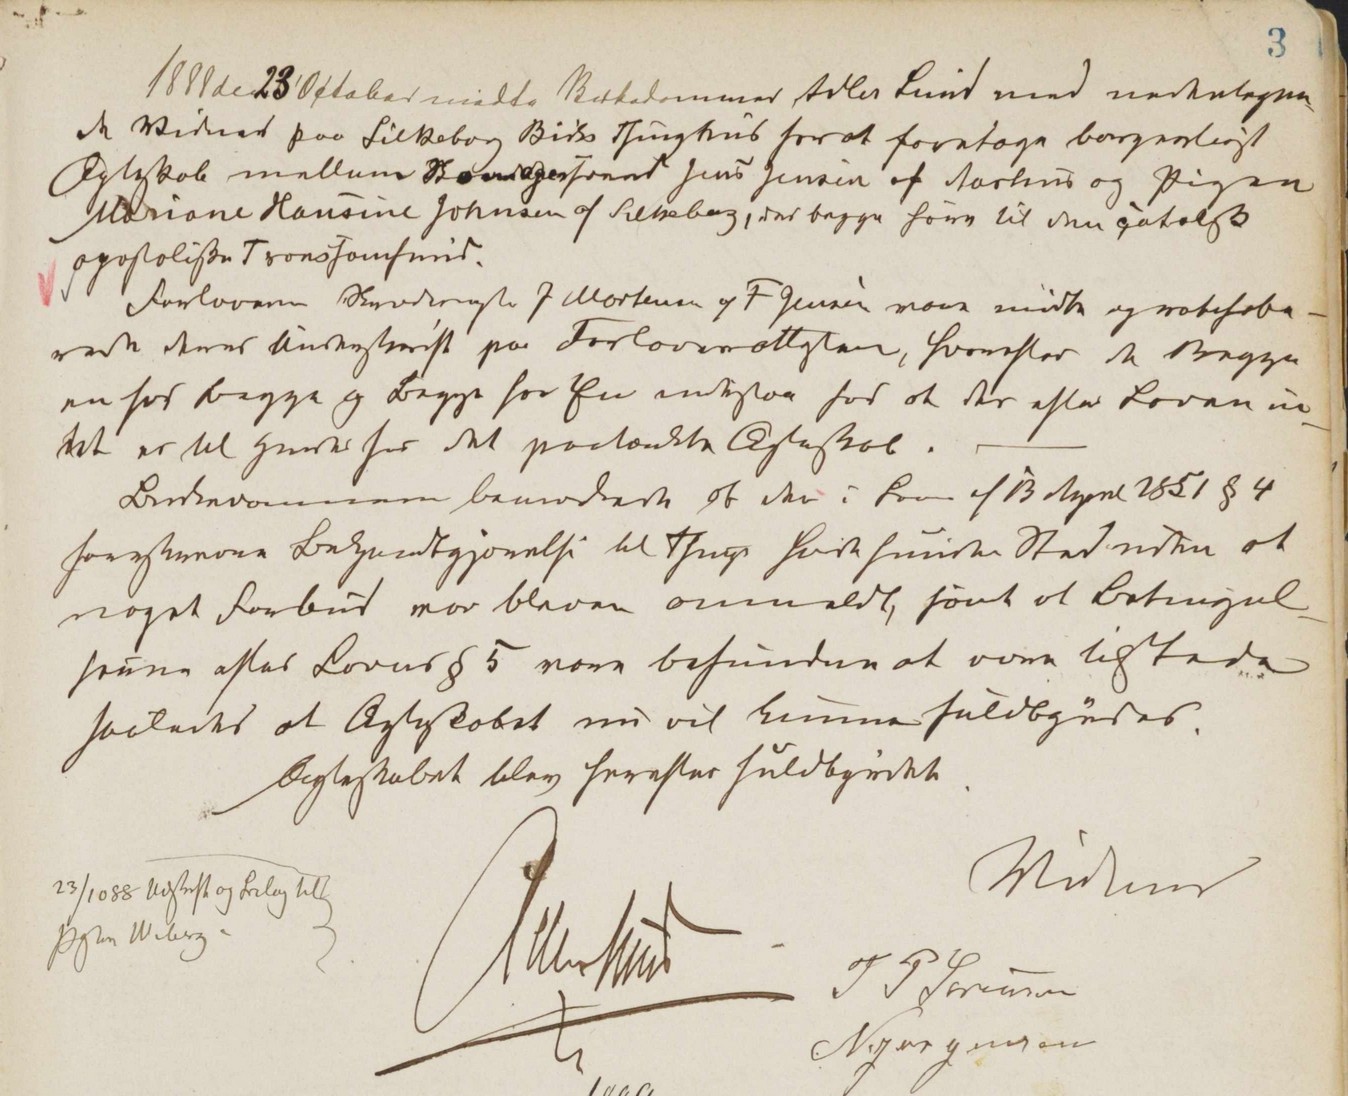 3
1888 den 23 October mødte Birkedommer Adler Lund med nedentegne-
de Vidner paa Silkeborg Birks Thinghus for at foretage borgerligt
Ægteskab mellem Jens Jensen af Aarhus og Pigen
Mariane Hansine Johnsen af Silkeborg, der begge høre til den catolsk
apostoliske Troessamfund.
Forloverne J Mortensen og F Jensen vare mødte og vedkjendte
deres Underskrift paa Forloverattesten, hvorefter de Begge
en for begge og Begge for En indestaa for at der efter Loven in-
tet er til Hinder for det paatænkte Ægteskab.
Birkedommeren bemærkede at den i Lov af 13 April 1851 § 4
foreskrevne Bekjendtgjørelse til Thinge havde funden Sted uden at
noget Forbud var bleven anmeldt, samt at Betingel-
serne efter Lovens § 5 vare befundne at være tilstede
saaledes at Ægteskabet nu vil kunne fuldbyrdes.
Ægteskabet blev herefter fuldbyrdet.
Vidner
23/10 88 Udskrift og Bilag til
Adler Lund
J P Sørensen
N Jørgensen